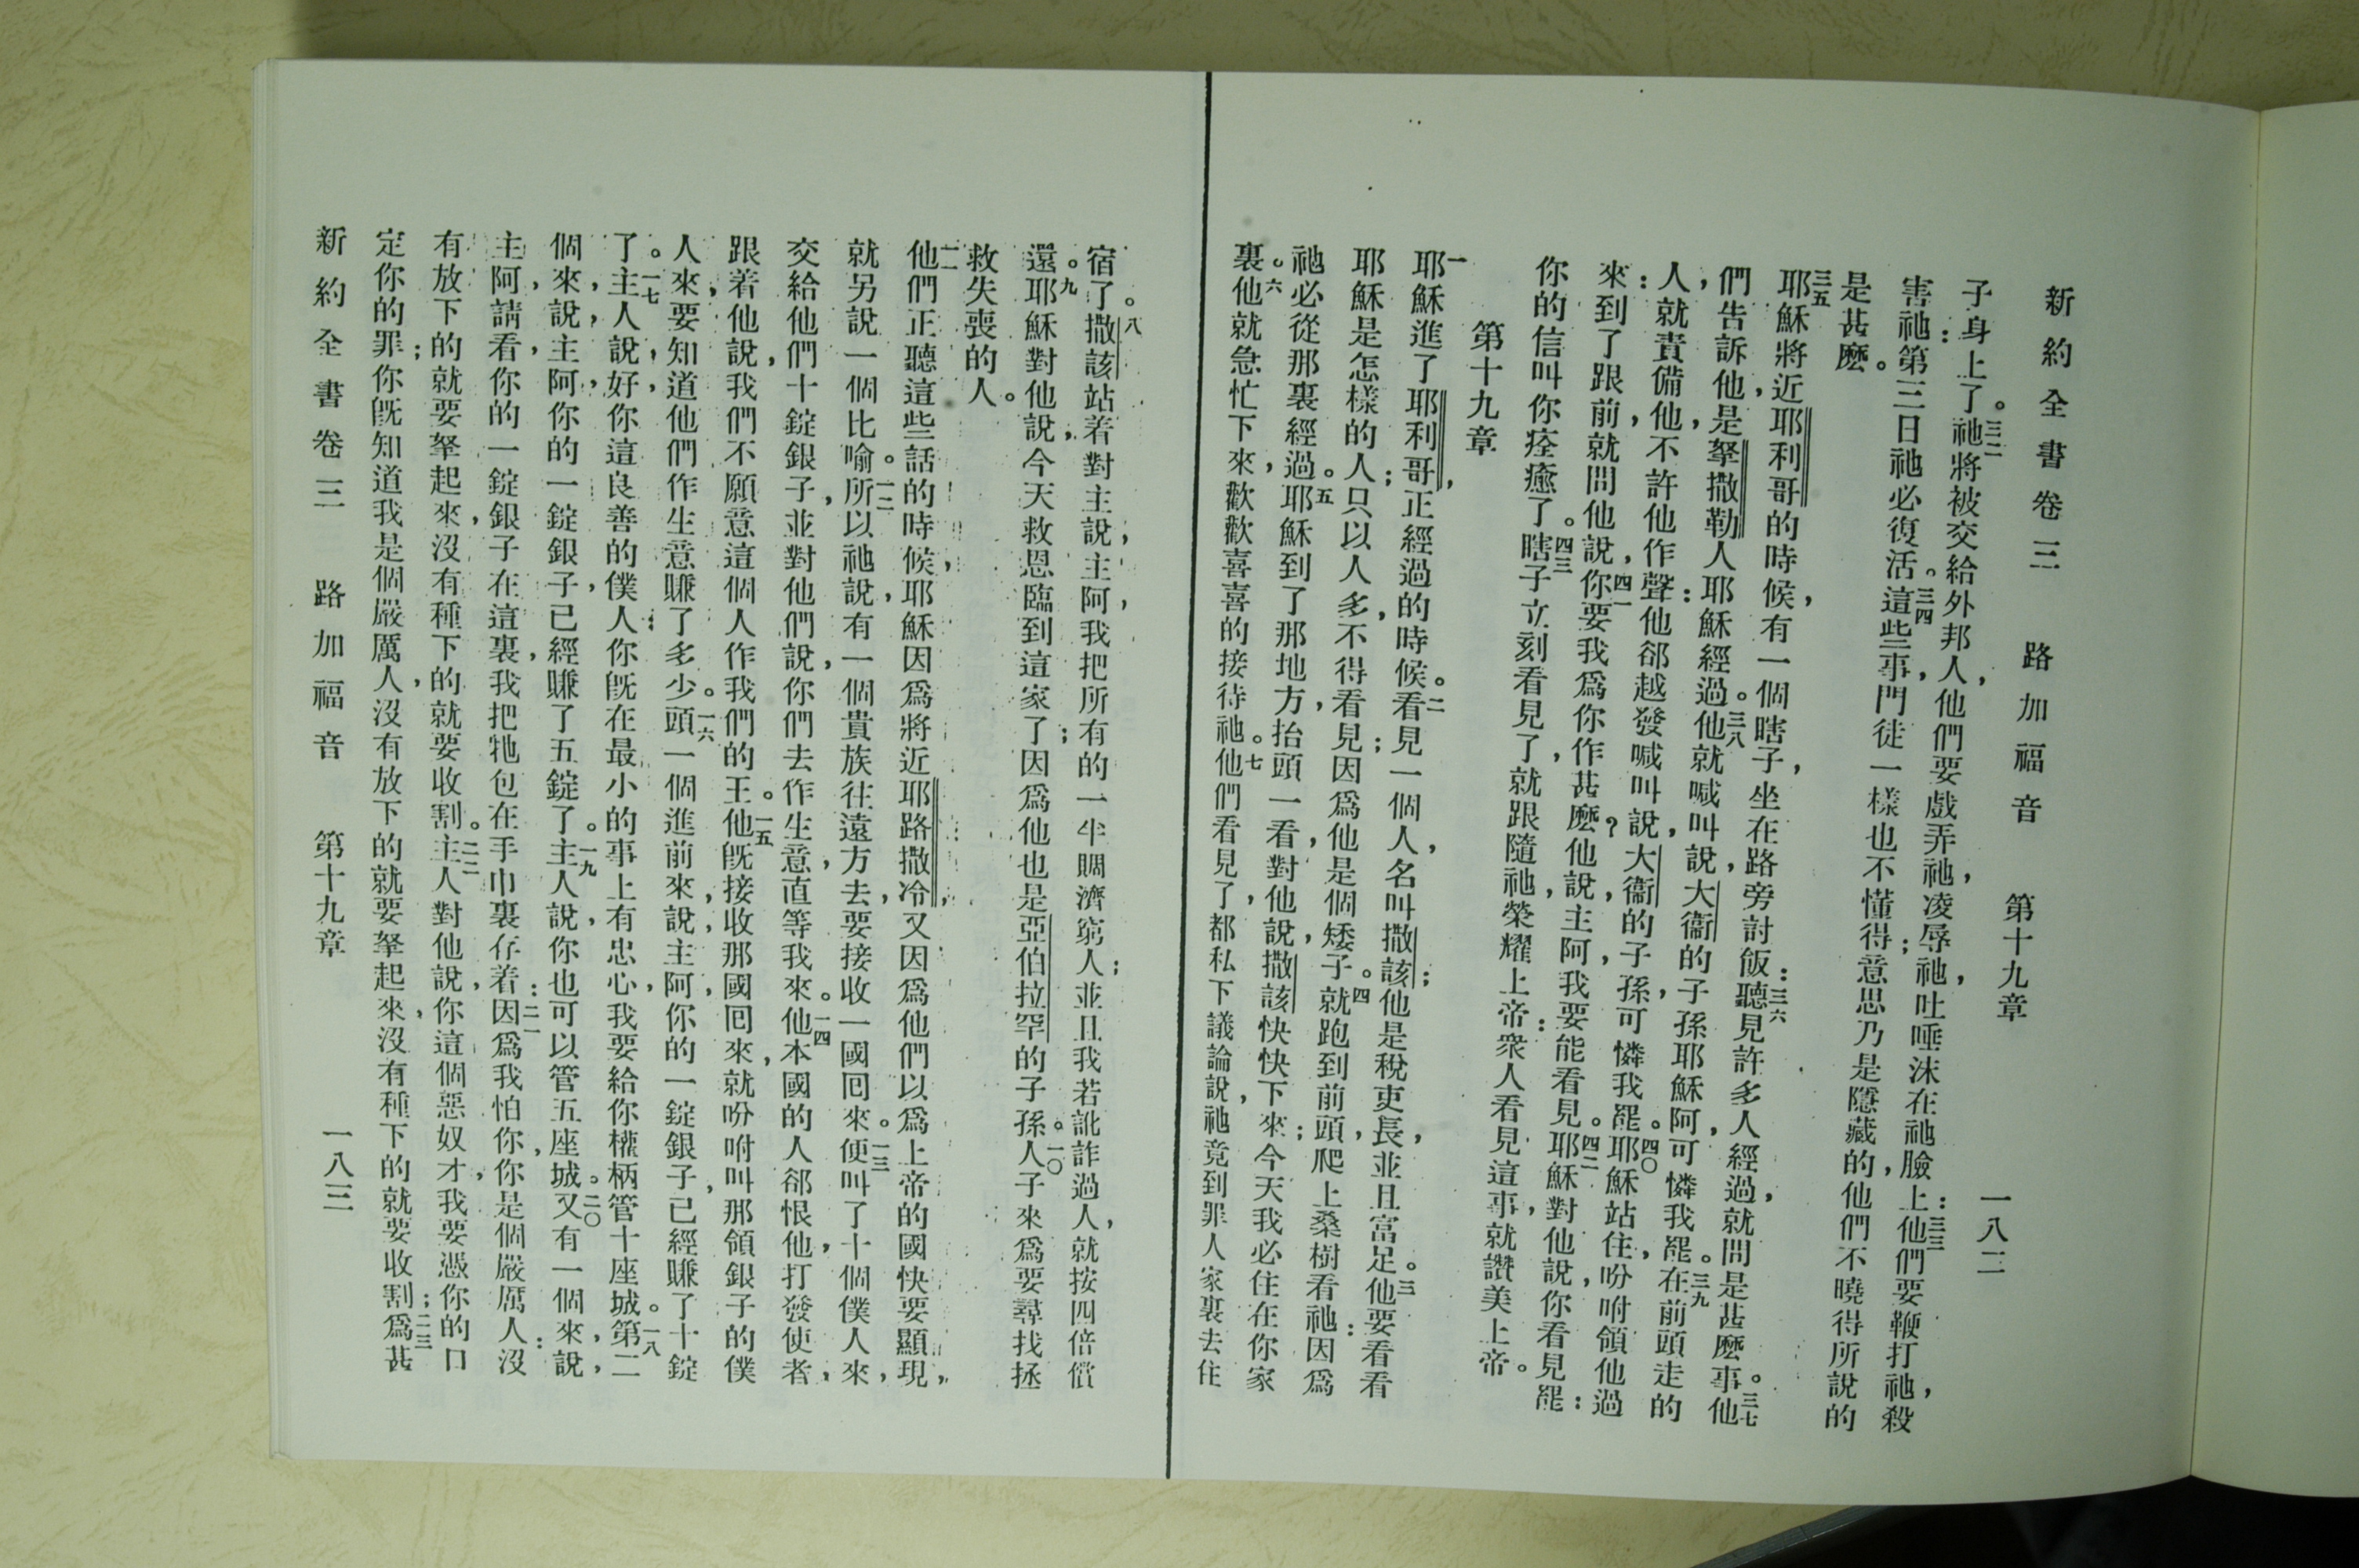 新約全書卷三 路加福音 第十九章 一八二
子身上了。三二祂將被交給外邦人，他們要戲弄祂，凌辱祂，吐唾沫在祂臉上：三三他們要鞭打祂，殺
害祂：第三日祂必復活。三四這些事，門徒一樣也不懂得；意思乃是隱藏的，他們不曉得所說的
是甚麼。
三五耶穌將近耶利哥的時候，有一個瞎子，坐在路旁討飯：三六聽見許多人經過，就問是甚麼事。三七他
們告訴他，是拏撒勒人耶穌經過。三八他就喊叫說，大衞的子孫耶穌阿，可憐我罷。三九在前頭走的
人，就責備他，不許他作聲：他郤越發喊叫說，大衞的子孫，可憐我罷。四〇耶穌站住，吩咐領他過
來：到了跟前，就問他說，四一你要我爲你作甚麼？他說，主阿，我要能看見。四二耶穌對他說，你看見罷：
你的信叫你痊癒了。四三瞎子立刻看見了，就跟隨祂，榮耀上帝：衆人看見這事，就讚美上帝。
第十九章
一耶穌進了耶利哥，正經過的時候。二看見一個人，名叫撒該；他是稅吏長，並且富足。三他要看看
耶穌是怎樣的人；只以人多，不得看見；因爲他是個矮子。四就跑到前頭，爬上桑樹看祂：因爲
祂必從那裏經過。五耶穌到了那地方，抬頭一看，對他說，撒該，快快下來；今天我必住在你家
裏。六他就急忙下來，歡歡喜喜的接待祂。七他們看見了，都私下議論說，祂竟到罪人家裏去住
宿了。八撒該站着對主說，主阿，我把所有的一半賙濟窮人；並且我若訛詐過人，就按四倍償
還。九耶穌對他說，今天救恩臨到這家了；因爲他也是亞伯拉罕的子孫。一〇人子來爲要尋找拯
救失喪的人。
一一他們正聽這些話的時候，耶穌因爲將近耶路撒冷，又因爲他們以爲上帝的國快要顯現，
就另說一個比喻。一二所以祂說，有一個貴族往遠方去，要接收一國囘來。一三便叫了十個僕人來，
交給他們十錠銀子，並對他們說，你們去作生意，直等我來。一四他本國的人郤恨他，打發使者，
跟着他說，我們不願意這個人作我們的王。一五他旣接收那國囘來，就吩咐叫那領銀子的僕
人來，要知道他們作生意賺了多少。一六頭一個進前來，說，主阿，你的一錠銀子，已經賺了十錠
了。一七主人說，好，你這良善的僕人；你旣在最小的事上有忠心，我要給你權柄管十座城。一八第二
個，來說，主阿，你的一錠銀子，已經賺了五錠了。一九主人說，你也可以管五座城。二〇又有一個來，說，
主阿，請看，你的一錠銀子在這裏，我把牠包在手巾裏存着：二一因爲我怕你，你是個嚴厲人：沒
有放下的就要拏起來，沒有種下的就要收割。二二主人對他說，你這個惡奴才，我要憑你的口
定你的罪；你旣知道我是個嚴厲人，沒有放下的就要拏起來，沒有種下的就要收割；二三爲甚
新約全書卷三 路加福音 第十九章 一八三